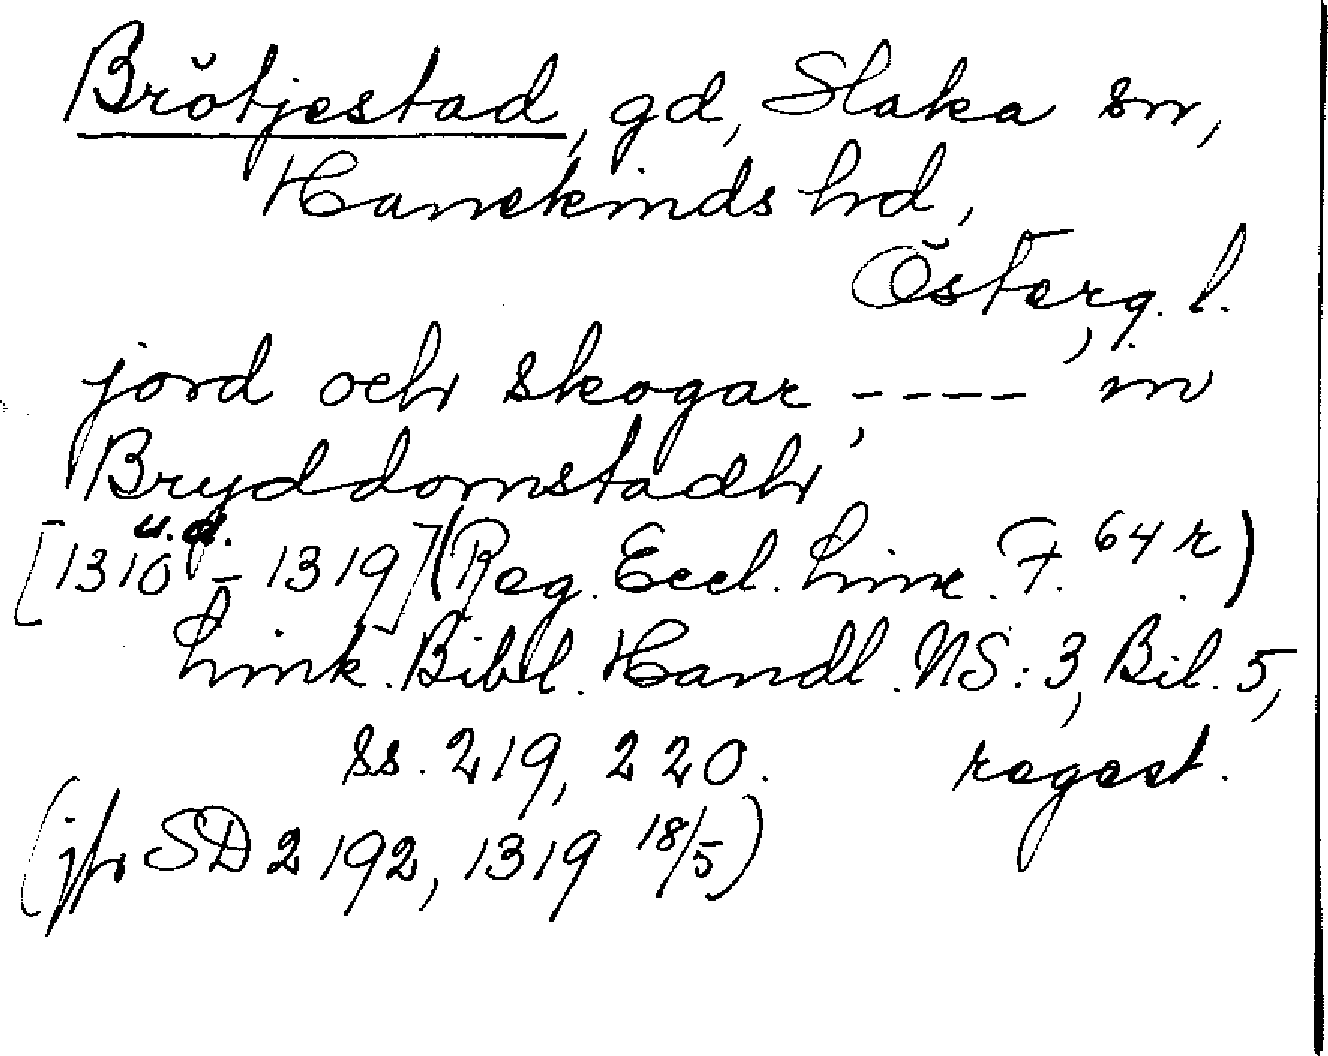 Brötjestad, gd, Slaka sn,
Hanekinds hd,
Österg. l.
jord och skogar, ---- in
Bryddomstadh
u.d.
[1310 - 1319] (Reg. Eccl. Linc. F. 64 r.)
Link. Bibl. Handl. NS: 3, Bil. 5,
ss. 219, 220. regest.
(jfr SD 2192, 1319 18/5)